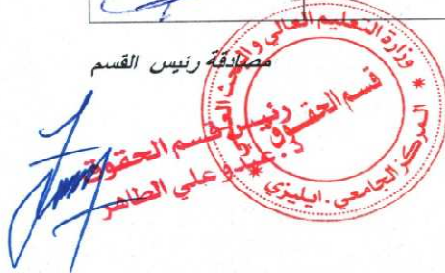 مصادقة رئيس القسم
وزارة التعليم العالي والبحث العلمي
قسم الحقوق
المركز الجامعي - ايليزي
رئيس قسم الحقوق
علي الطاهر